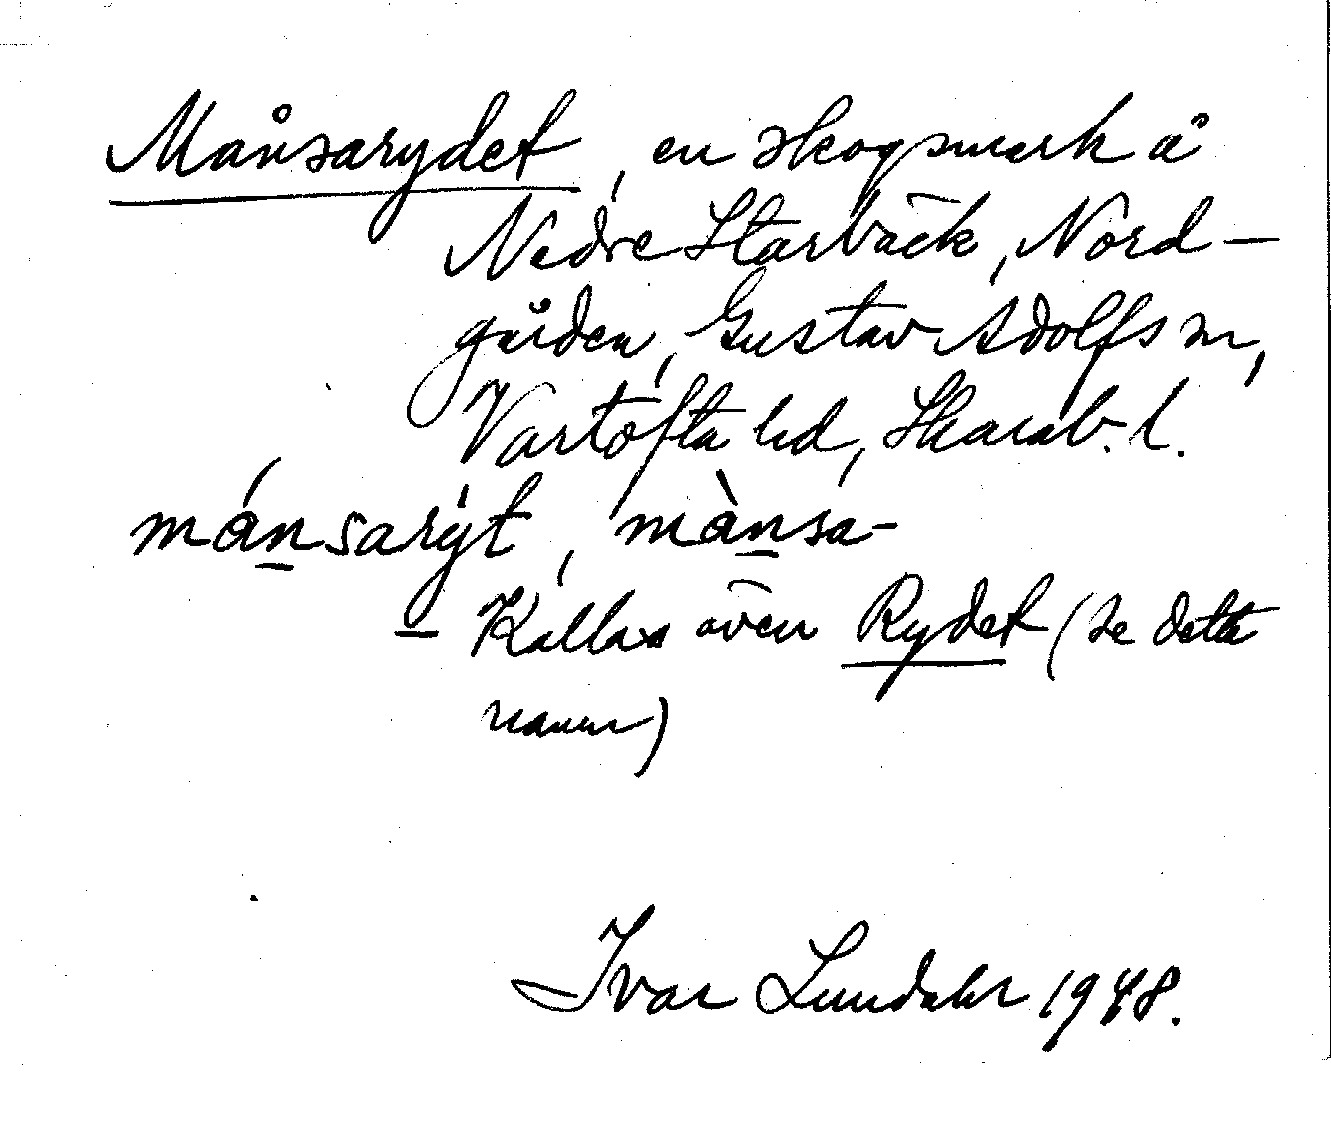 Månsarydet, en skogsmark å
Nedre Starbäck, Nord-
gården, Gustav Adolfs sn,
Vartofta hd, Skarab. l.
mánsarýt, mànsa-
Kallas även Rydet (se detta
namn)
Ivar Lundahl 1948.